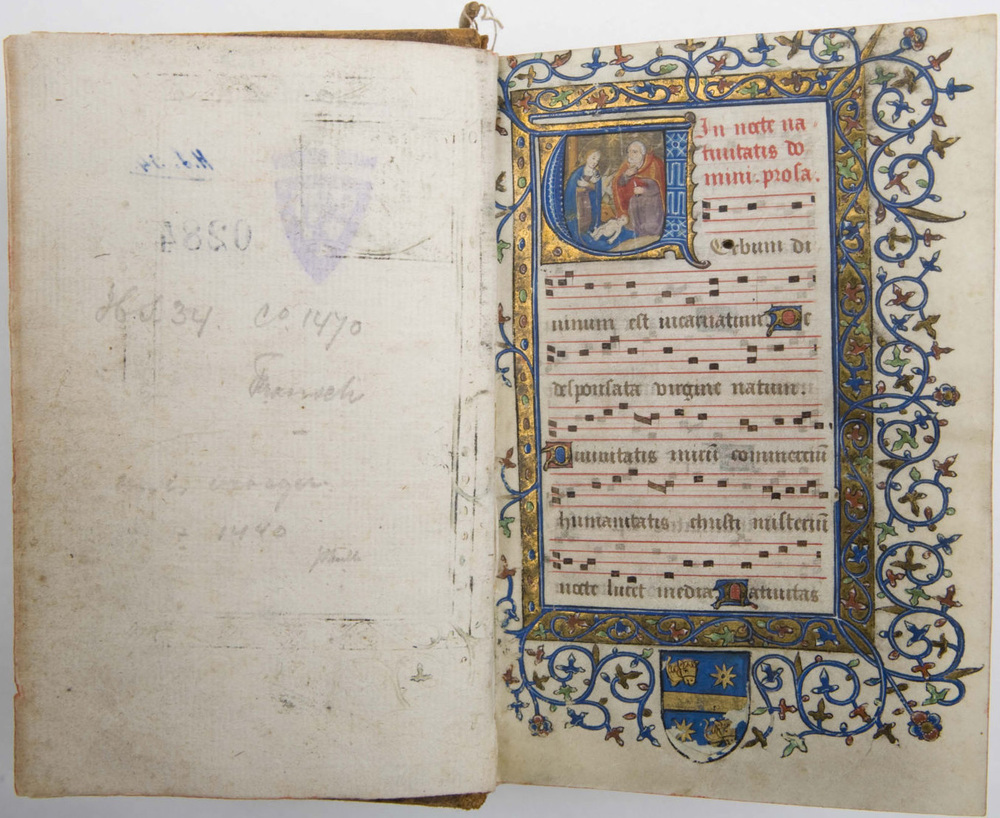 H.S. 34
0284
HS 34 co 1470
Fransch
= 1440
In nocte na
tiuitatis do
mini. prosa.
Erbum di
uinum est incarnatum De
desponsata virgine natum.
Diuinitatis miru commerciu
humanitatis christi misteriu
nocte lucet media Natiuitas